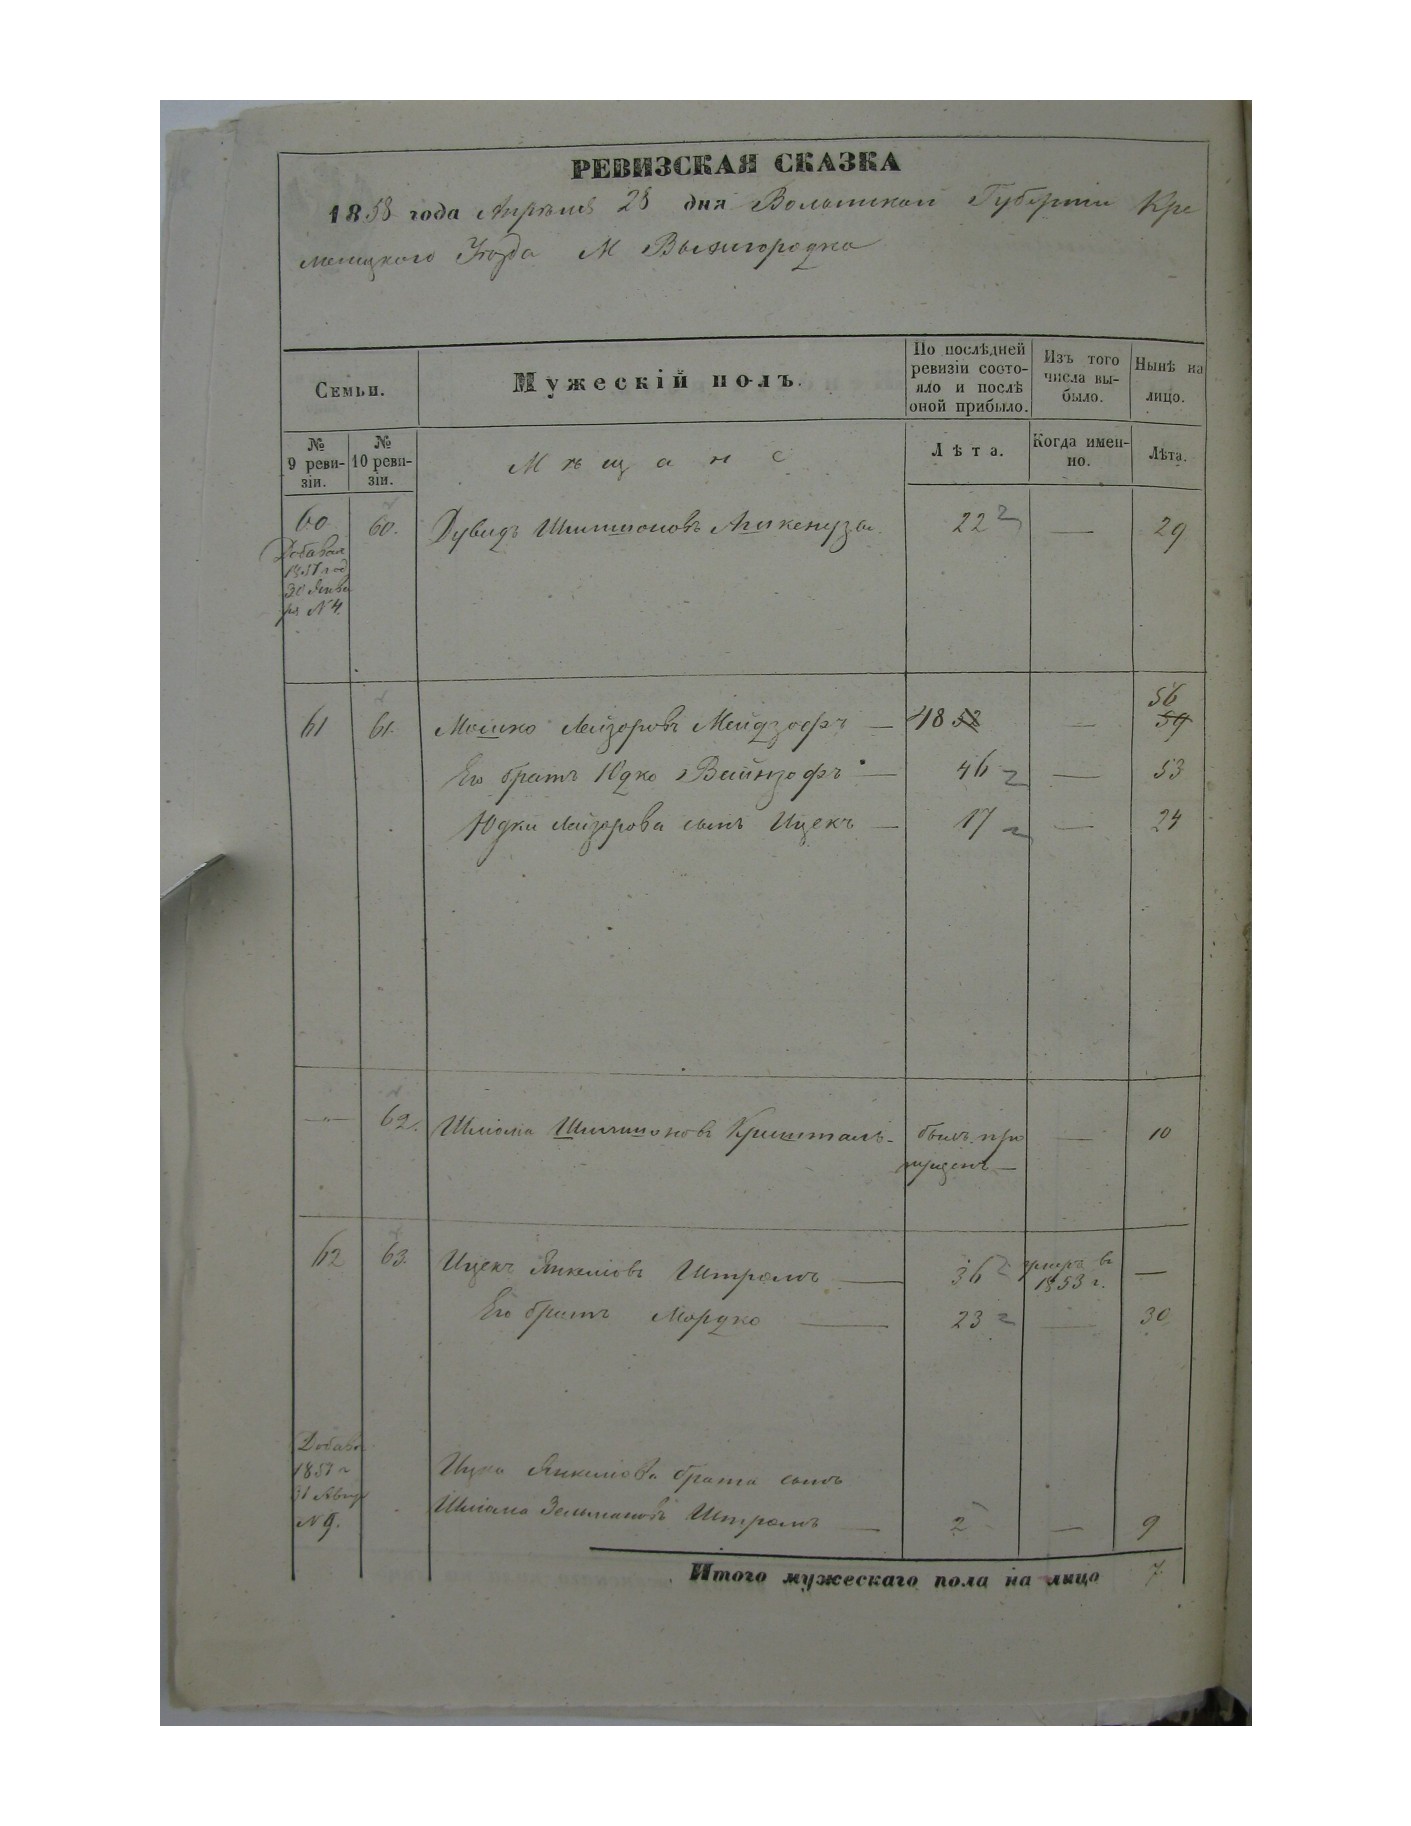 РЕВИЗСКАЯ СКАЗКА
1858 года Апреля 28 дня Волынской Губернiи Кре
менецкого Уезда М Вышгородка
Семьи.
Мужескiй полъ.
По послѣдней ревизiи состояло и послѣ оной прибыло.
Изъ того числа выбыло.
Нынѣ на лицо.
№ 9 ревизiи.
№ 10 ревизiи.
Мѣщане
Лѣта.
Когда именно.
Лѣта.
60 60. Дувидъ Шимшоновъ 22 — 29
Добавоч
1851 год
20 Янва
ря № 4.
61 61. Мошко Лейзоровъ — 48 52 — 56 59
Его братъ Юдко Вайнзофъ — 46 — 53
Юдки Лейзорова сынъ Ицекъ — 17 — 24
— 62. Шлiома Шимшоновъ Кришталь - былъ про — 10
пущенъ —
62 63. Ицекъ Янкелiовъ Штромъ — 36 умеръ въ —
1853 г.
Его братъ Мордко — 23 — 30
Добавоч
1851 г
31 Авгу
№ 9.
Ицка Янкелiова брата сынъ
Шлiома Зельмановъ Штромъ — 2 — 9
Итого мужескаго пола на лицо 7